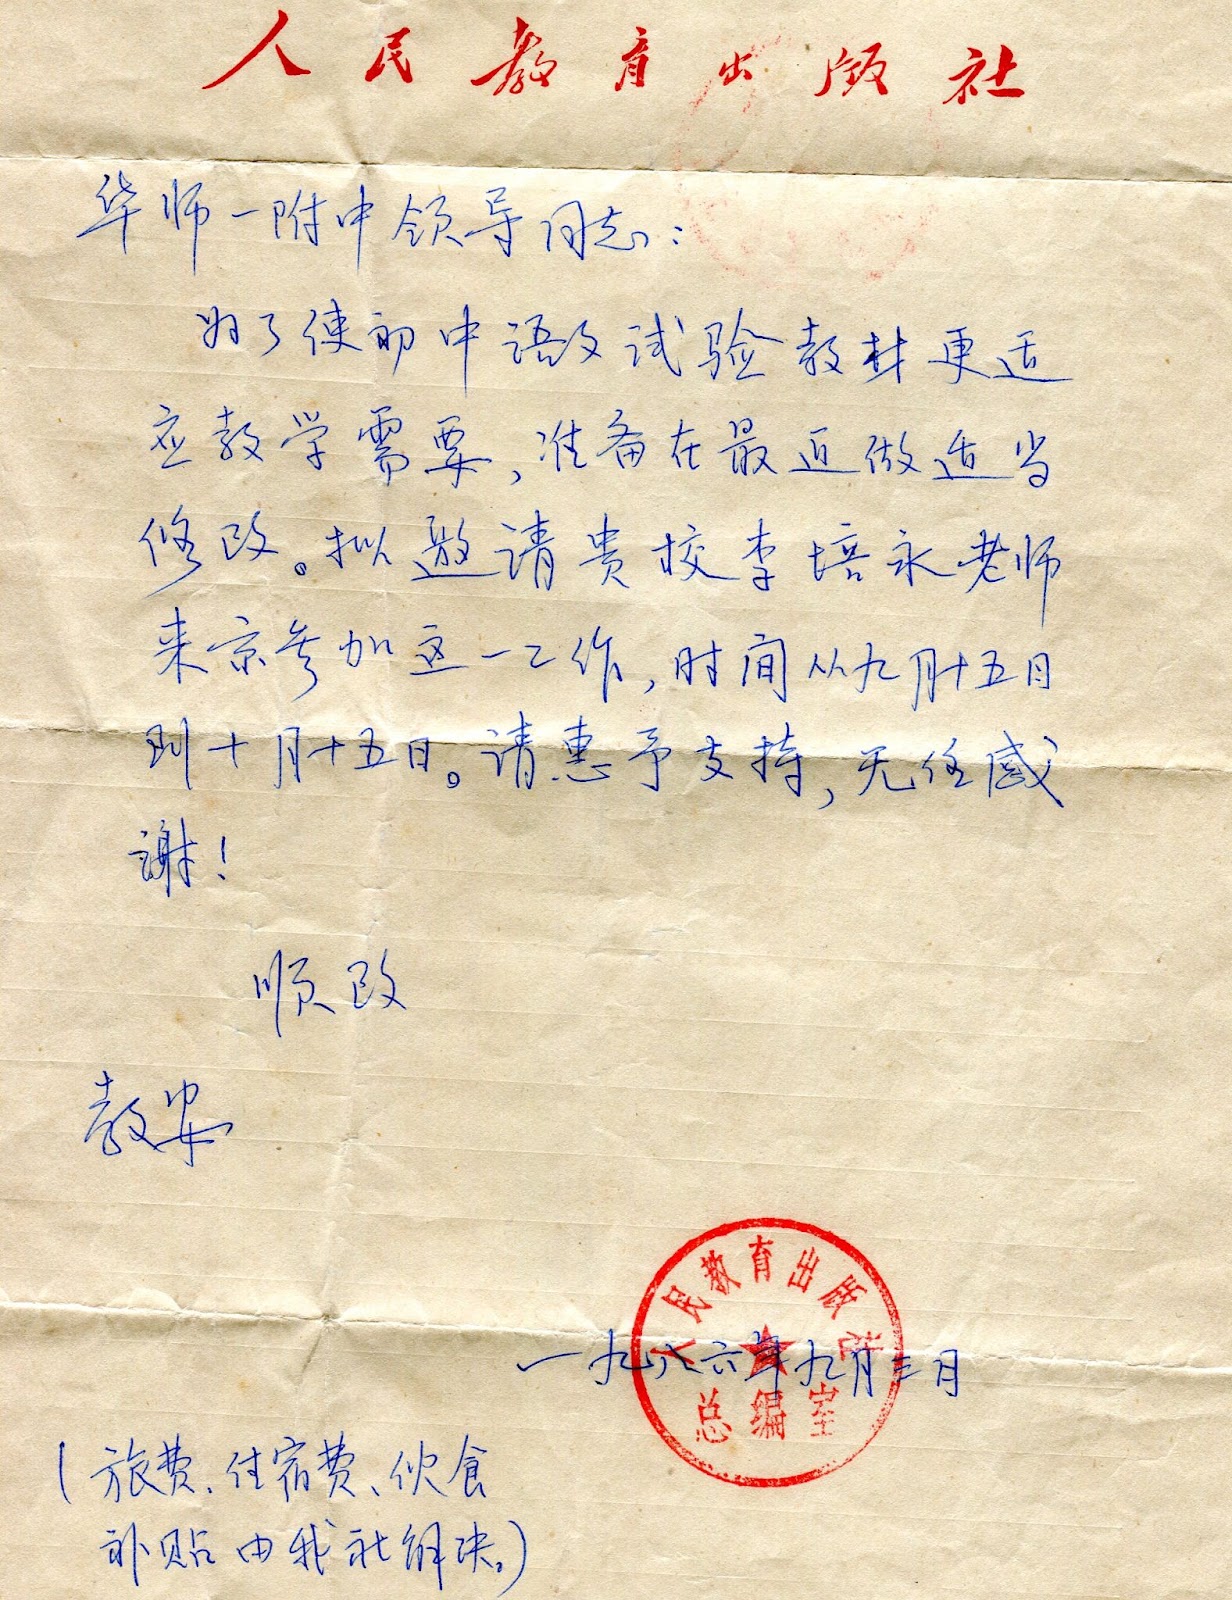 人民教育出版社
华师一附中领导同志：
为了使初中语文试验教材更适
应教学需要，准备在最近做适当
修改。拟邀请贵校李培永老师
来京参加这一工作，时间从九月十五日
到十月十五日。请惠予支持，无任感
谢！
顺致
教安
人民教育出版社
一九八六年九月三日
总编室
（旅费、住宿费、伙食
补贴由我社解决。）